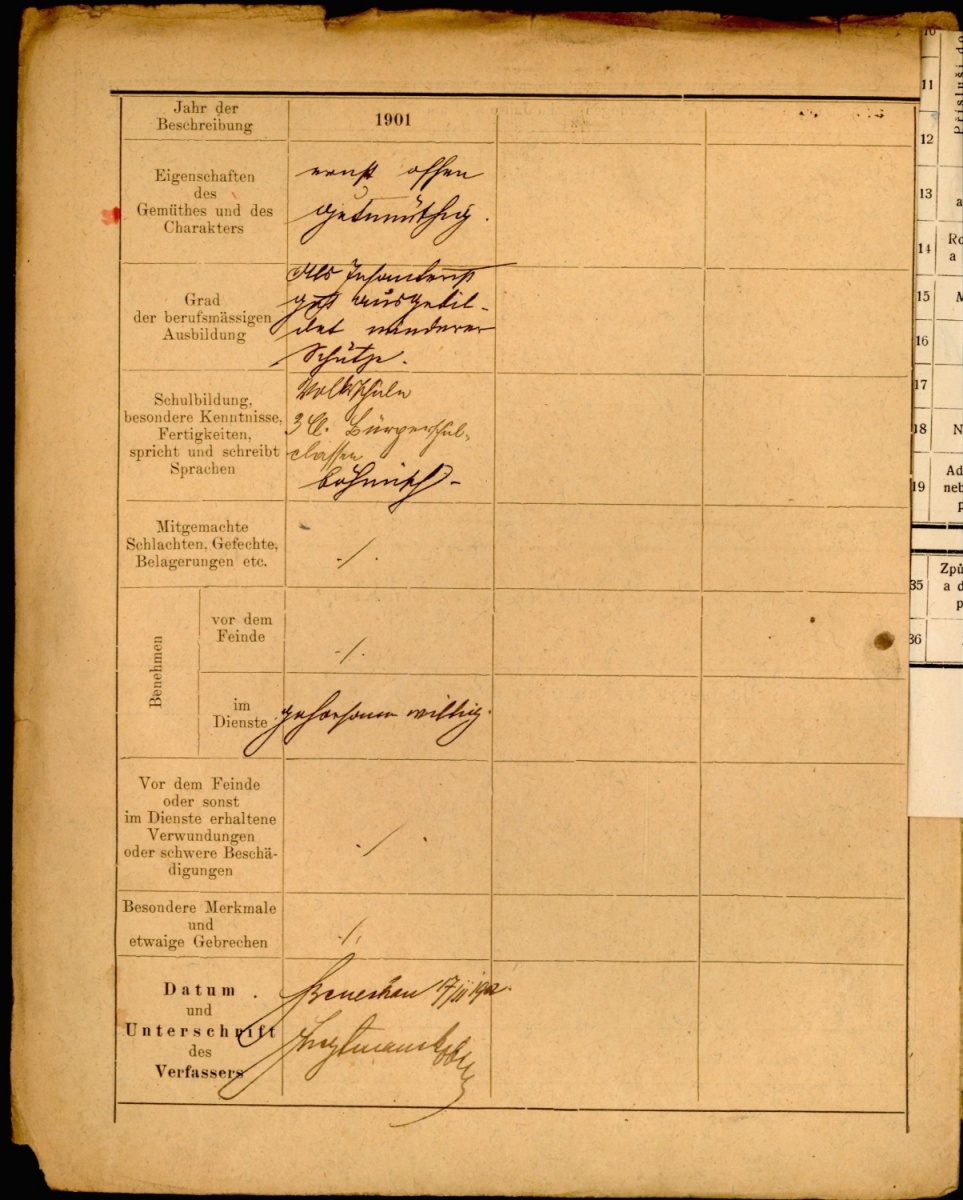 Jahr der
Beschreibung
1901
Eigenschaften
des
Gemüthes und des
Charakters
ernst offen
gutmüthig.
Grad
der berufsmässigen
Ausbildung
Als Infanterist
gut ausgebil-
det minderer
Schütze.
Schulbildung,
besondere Kenntnisse,
Fertigkeiten,
spricht und schreibt
Sprachen
Volksschule
3 Cl. Bürgerschul-
classen
böhmisch -
Mitgemachte
Schlachten, Gefechte,
Belagerungen etc.
./.
Benehmen
vor dem
Feinde
./.
im
Dienste
gehorsam willig.
Vor dem Feinde
oder sonst
im Dienste erhaltene
Verwundungen
oder schwere Beschä-
digungen
./.
Besondere Merkmale
und
etwaige Gebrechen
./.
Datum
und
Unterschrift
des
Verfassers
Beneschau 17/
10
11
12
13
14
15
16
17
18
19
35
36
Přísluší do
a
Ro
a
M
N
Ad
neb
p
Způ
a d
p